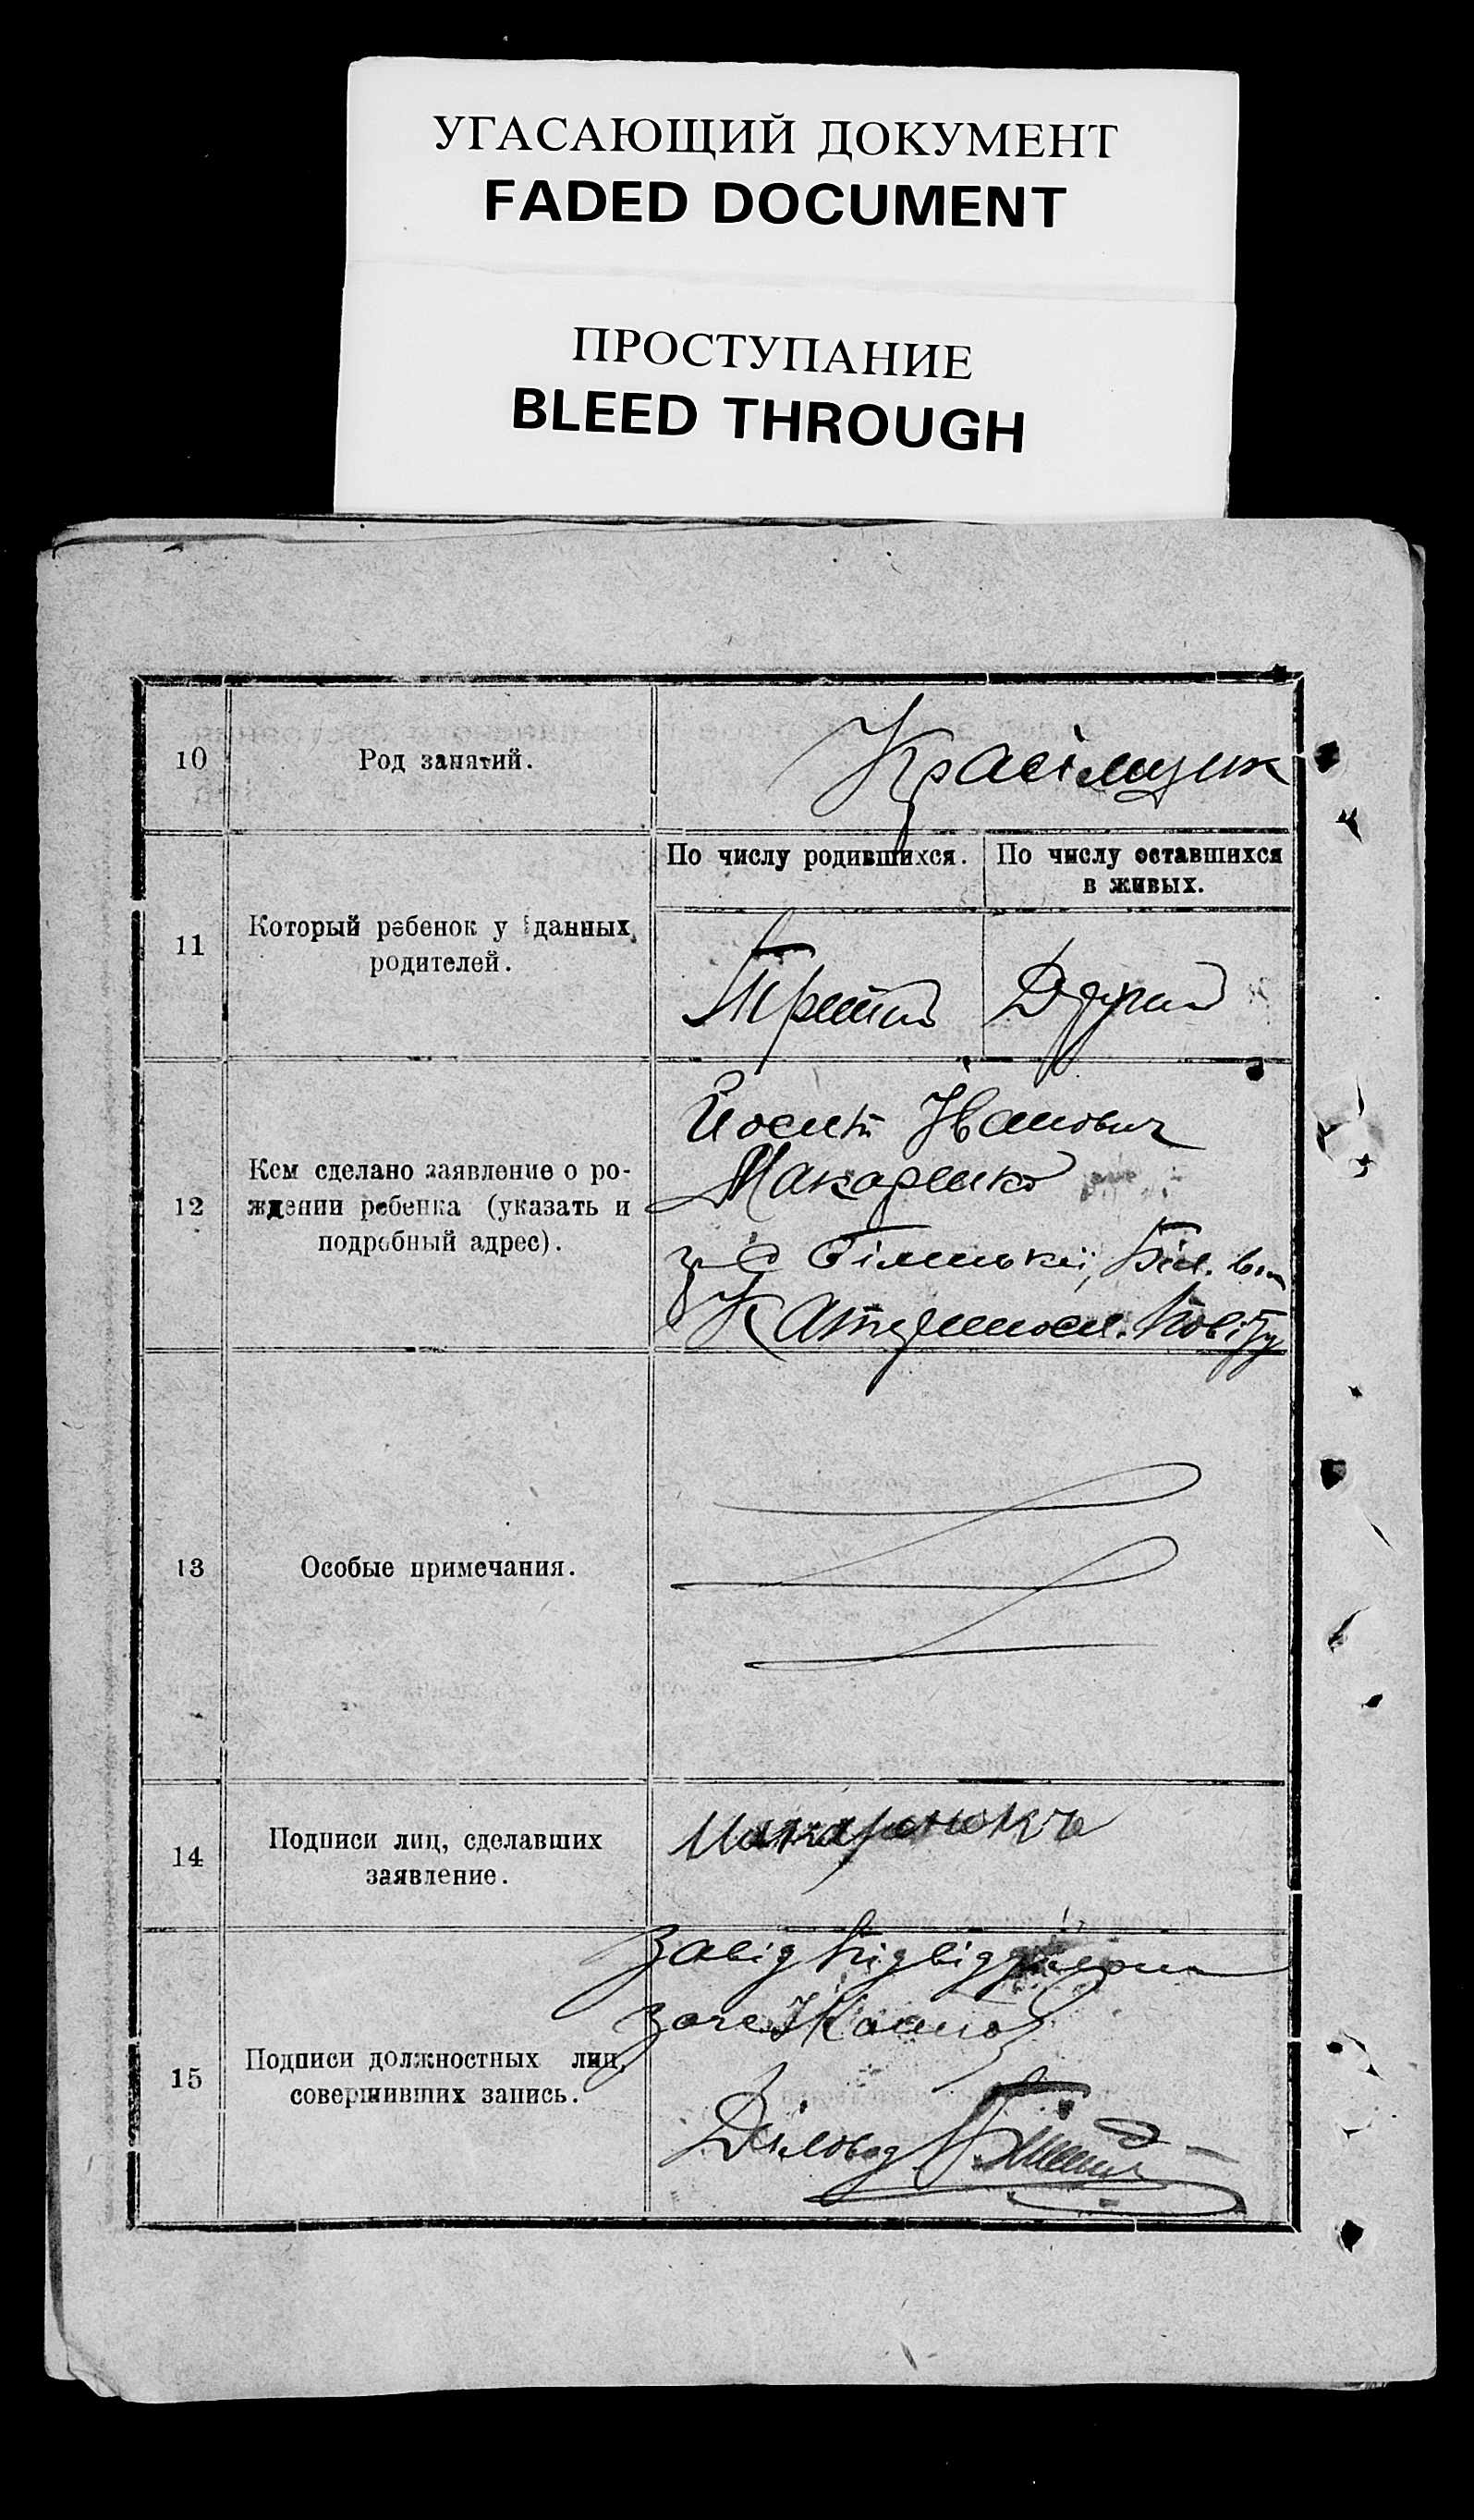 УГАСАЮЩИЙ ДОКУМЕНТ
FADED DOCUMENT
ПРОСТУПАНИЕ
BLEED THROUGH
10
Род занятий.
11
Который ребенок у данных
родителей.
По числу родившихся.
По числу оставшихся
в живых.
Третий
Другий
12
Кем сделано заявление о ро-
ждении ребенка (указать и
подробный адрес).
Йосип Іванович
Макаренко
Повіту
13
Особые примечания.
14
Подписи лиц, сделавших
заявление.
15
Подписи должностных лиц,
совершивших запись.
Завід підвідділом
Діловод